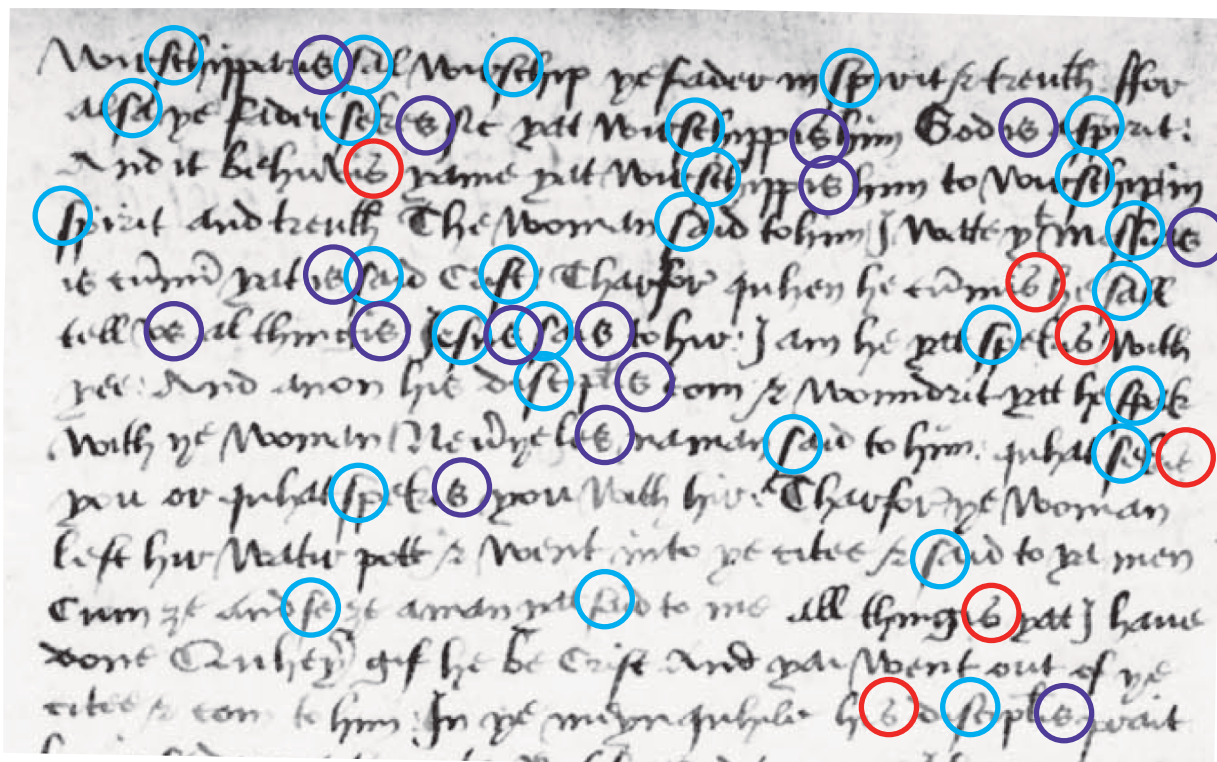 Worschipparis sal Worschip ye fader in spirit & treuth ffor
alsa ye fader sekis sic yatt Worschippis him God is a spirit:
And it behuvis yame yatt Worschippis him to Worschip in
spirit and treuth The Woman said to him J Watte yt Messias
is cummin yat is said Crist Tharfor quhen he cummis he sall
tell vs al thingis Jesus sais to hir: J am he yatt spekis With
yee: And anon his discipils com & Wonndrit yatt he spek
With ye Woman Neuiryeles naman said to him: quhat sekis
you or quhat spekis you With hir: Tharfor ye Woman
left hir Watir pott & Went into ye citee & said to ya men
Cum ye and se ye a man yat said to me all thingis yatt J have
done Quhey gif he be Crist And yai Went out of ye
citee & com to him: Jn ye meyn quhile his discipils prait